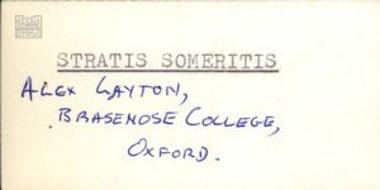 STRATIS SOMERITIS
ALEX LAYTON,
BRASENOSE COLLEGE,
OXFORD.